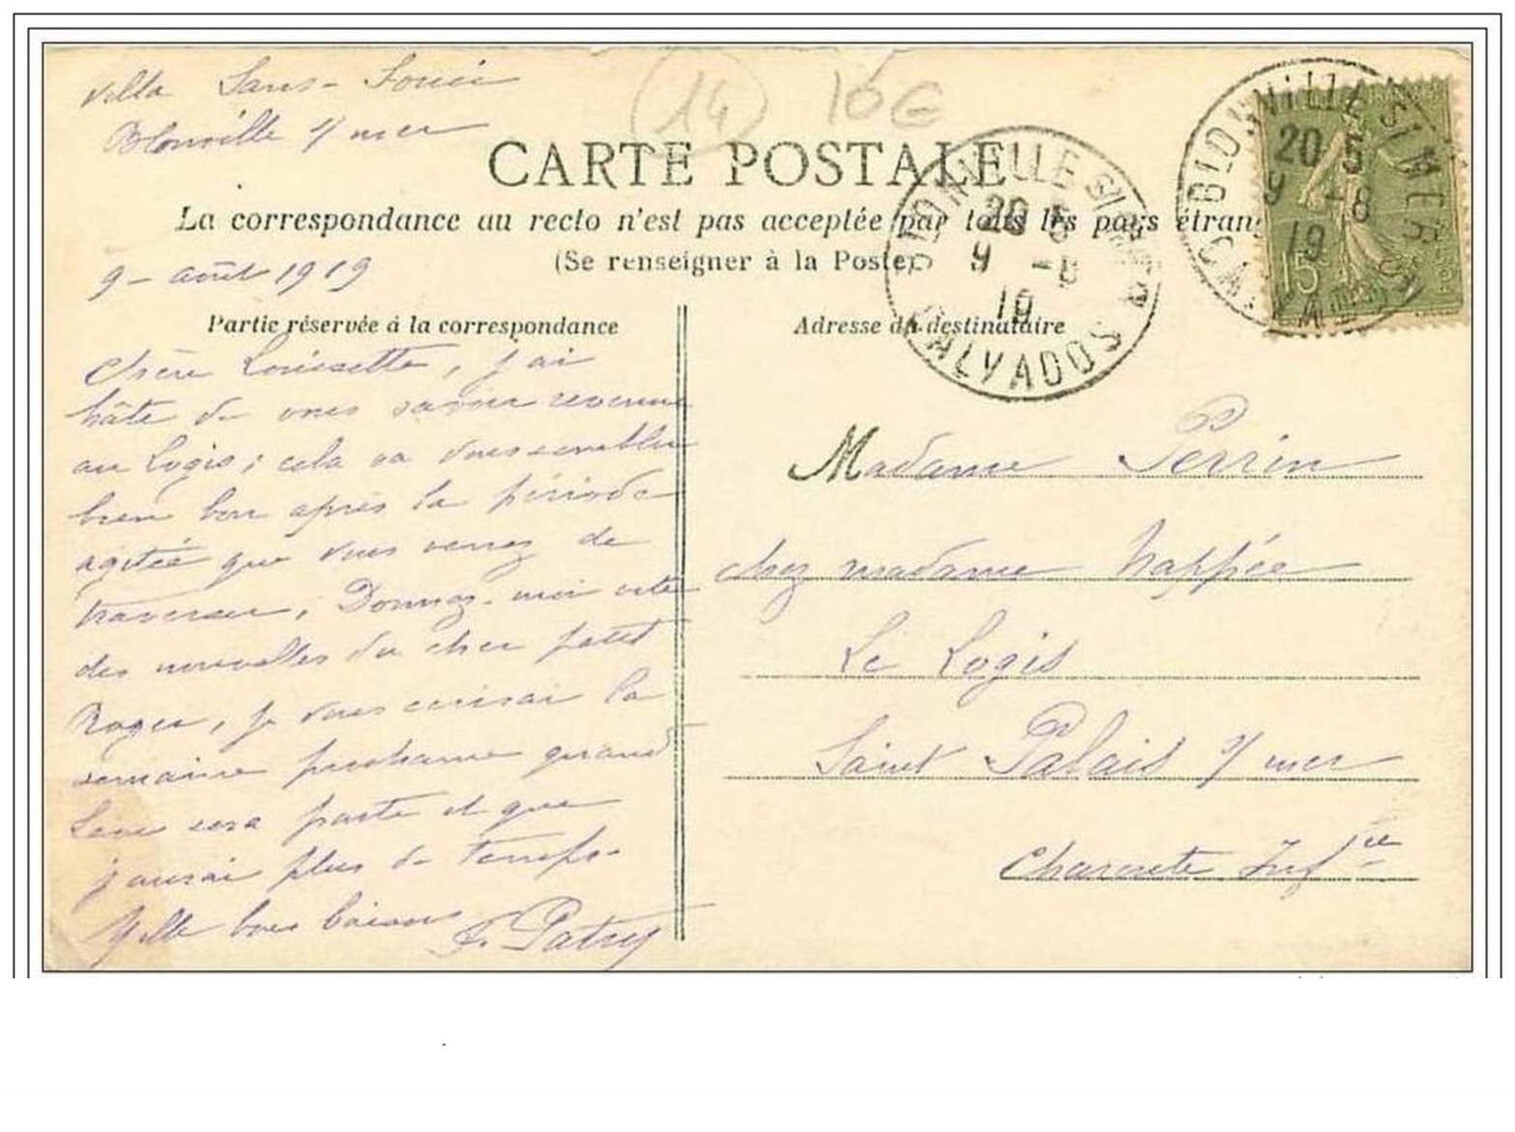 Villa Sans-Souci
Blonville s/ mer
14
10€
CARTE POSTALE
La correspondance au recto n'est pas acceptée par tous les pays étran
(Se renseigner à la Poste)
9 - août 1919
Partie réservée à la correspondance
chère Louisette, j'ai
hâte de vous savoir revenue
au Logis; cela va vous sembler
bien bon après la période
agitée que vous venez de
traverser. Donnez-moi vite
des nouvelles du cher petit
Roger, je vous écrirai la
semaine prochaine quand
sera partie et que
j'aurai plus de temps.
Mille bons baisers
Patry
Adresse du destinataire
Madame Perrin
chez madame Nappée
Le Logis
Saint Palais s/ mer
Charente Infre
BLONVILLE S/MER
20 5
9 -8
19
CALVADOS
BLONVILLE S/MER
20 5
9 -8
19
CALVADOS
15